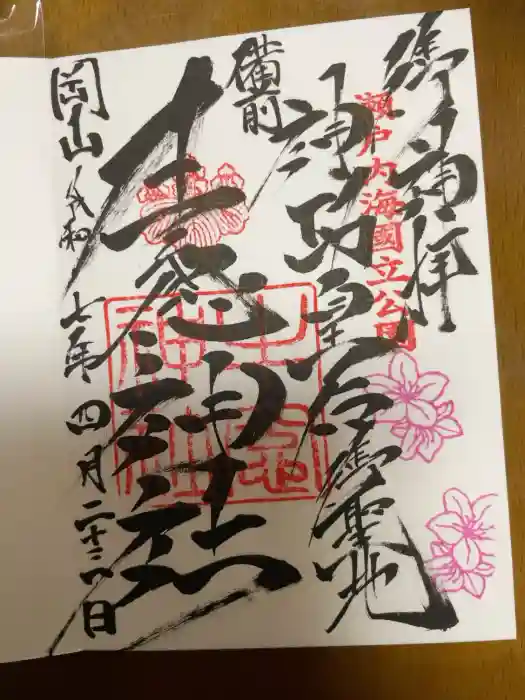 御神拝
瀬戸内海國立公園
神功皇后御聖地
備前
牛窓神社
岡山 令和七年四月二十二日